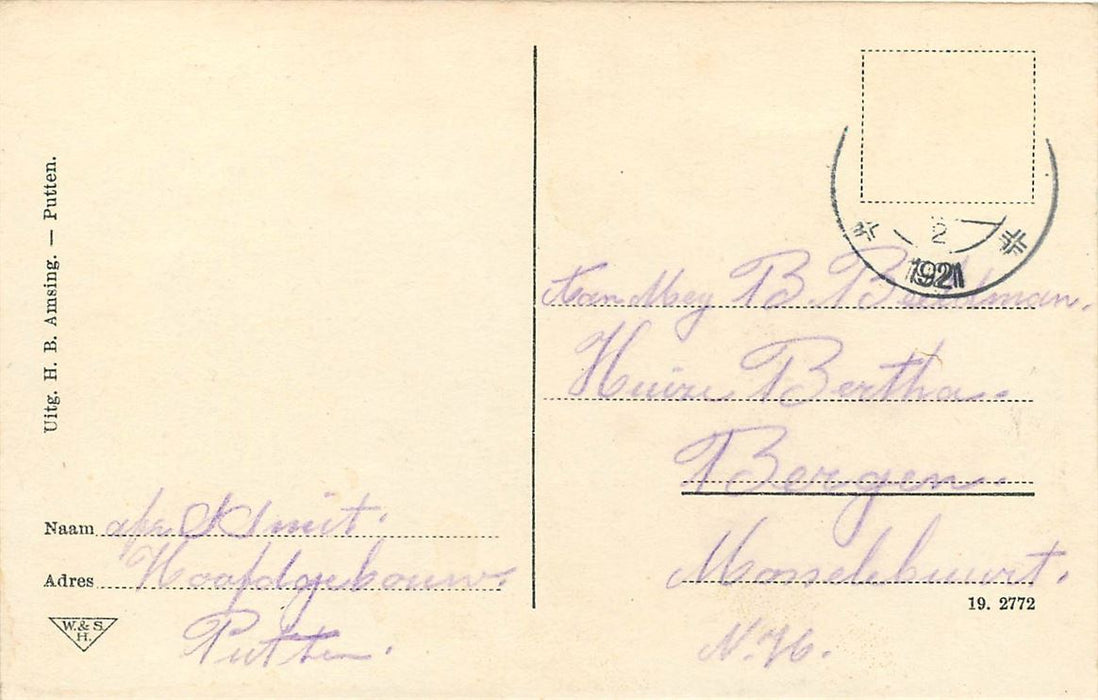 Uitg. H. B. Amsing. — Putten.
Naam afz. Smit.
Adres Hoofdgebouw.
Putten.
W. & S.
H.
2
1921
Aan Mej B. Beeldman.
Huize Bertha
Bergen
Mosselebuurt.
19. 2772
N.H.